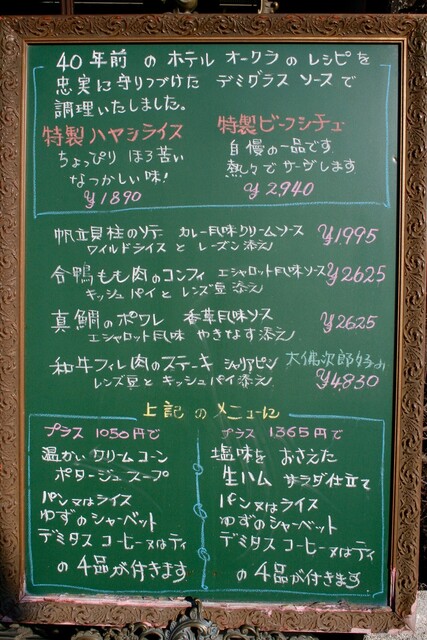 40年前のホテルオークラのレシピを
忠実に守りつづけたデミグラスソースで
調理いたしました。
特製ハヤシライス
ちょっぴりほろ苦い
なつかしい味!
¥1890
特製ビーフシチュー
自慢の一品です
熱々でサーヴします
¥2,940
帆立貝柱のソテー カレー風味クリームソース ¥1,995
ワイルドライスとレーズン添え
合鴨もも肉のコンフィ エシャロット風味ソース ¥2625
キッシュパイとレンズ豆添え
真鯛のポワレ 香草風味ソース ¥2625
エシャロット風味やきなす添え
和牛フィレ肉のステーキ シャリアピン 大佛次郎好み
レンズ豆とキッシュパイ添え ¥4,830
上記のメニューに
プラス1050円で
温かいクリームコーン
ポタージュスープ
パン又はライス
ゆずのシャーベット
デミタスコーヒー又はティー
の4品が付きます
プラス1365円で
塩味をおさえた
生ハムサラダ仕立て
パン又はライス
ゆずのシャーベット
デミタスコーヒー又はティ
の4品が付きます